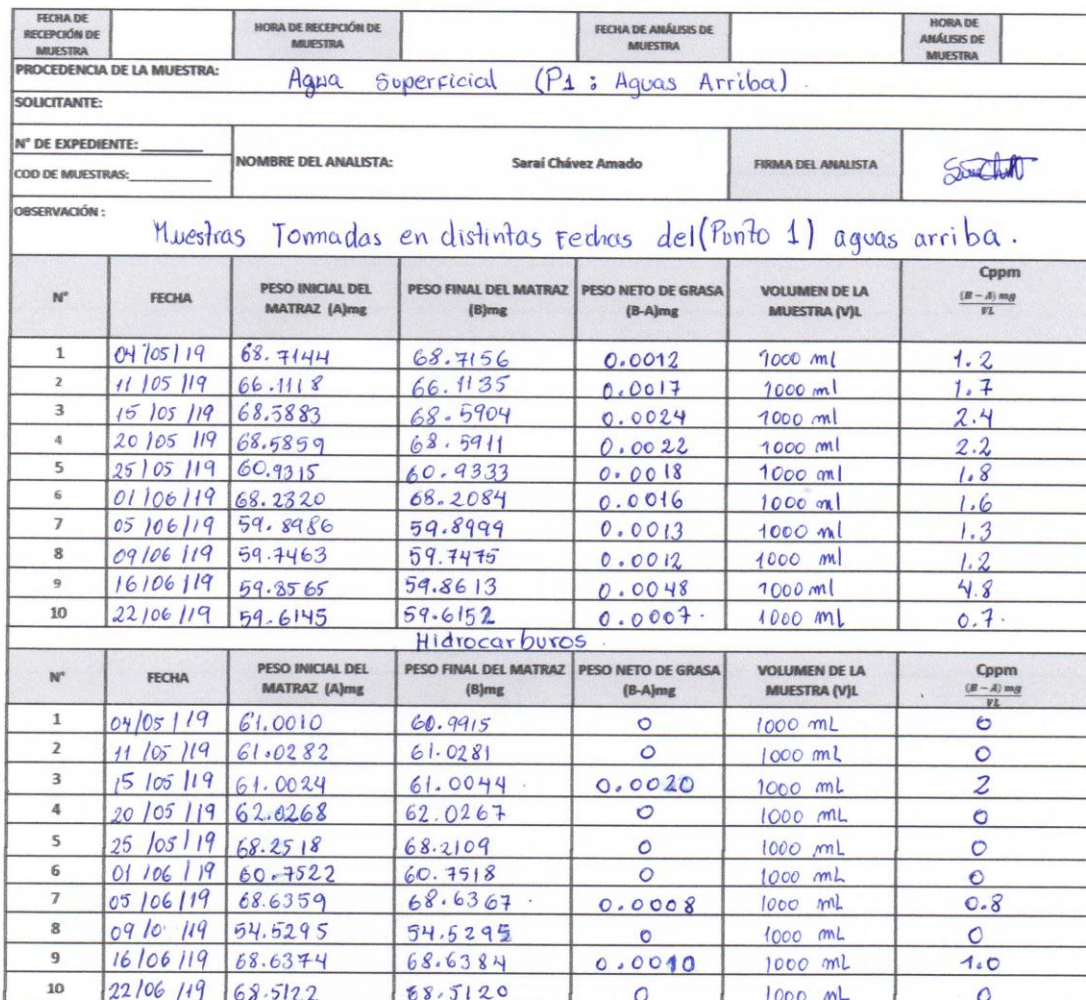 FECHA DE RECEPCIÓN DE MUESTRA HORA DE RECEPCIÓN DE MUESTRA FECHA DE ANÁLISIS DE MUESTRA HORA DE ANÁLISIS DE MUESTRA
PROCEDENCIA DE LA MUESTRA: Agua Superficial (P1 : Aguas Arriba).
SOLICITANTE:
N° DE EXPEDIENTE: ________
COD DE MUESTRAS:__________ NOMBRE DEL ANALISTA: Saraí Chávez Amado FIRMA DEL ANALISTA
OBSERVACIÓN :
Muestras Tommadas en distintas Fechas del (Punto 1) aguas arriba.
N° FECHA PESO INICIAL DEL MATRAZ (A)mg PESO FINAL DEL MATRAZ (B)mg PESO NETO DE GRASA (B-A)mg VOLUMEN DE LA MUESTRA (V)L Cppm (B – A) mg / VL
1 04/05/19 68.7144 68.7156 0.0012 1000 ml 1.2
2 11/05/19 66.1118 66.1135 0.0017 1000 ml 1.7
3 15/05/19 68.5883 68.5904 0.0024 1000 ml 2.4
4 20/05/19 68.5859 68.5911 0.0022 1000 ml 2.2
5 25/05/19 60.9315 60.9333 0.0018 1000 ml 1.8
6 01/06/19 68.2320 68.2084 0.0016 1000 ml 1.6
7 05/06/19 59.8986 59.8999 0.0013 1000 ml 1.3
8 09/06/19 59.7463 59.7475 0.0012 1000 ml 1.2
9 16/06/19 59.8565 59.8613 0.0048 1000 ml 4.8
10 22/06/19 59.6145 59.6152 0.0007. 1000 mL 0.7.
Hidrocarburos.
N° FECHA PESO INICIAL DEL MATRAZ (A)mg PESO FINAL DEL MATRAZ (B)mg PESO NETO DE GRASA (B-A)mg VOLUMEN DE LA MUESTRA (V)L Cppm (B – A) mg / VL
1 04/05/19 61.0010 60.9915 0 1000 mL 0
2 11/05/19 61.0282 61.0281 0 1000 mL 0
3 15/05/19 61.0024 61.0044 0.0020 1000 mL 2
4 20/05/19 62.0268 62.0267 0 1000 mL 0
5 25/05/19 68.2518 68.2109 0 1000 mL 0
6 01/06/19 60.7522 60.7518 0 1000 mL 0
7 05/06/19 68.6359 68.6367 0.0008 1000 mL 0.8
8 09/0 /19 54.5295 54.5295 0 1000 mL 0
9 16/06/19 68.6374 68.6384 0.0010 1000 mL 1.0
10 22/06/19 68.5122 68.5120 0 1000 mL 0